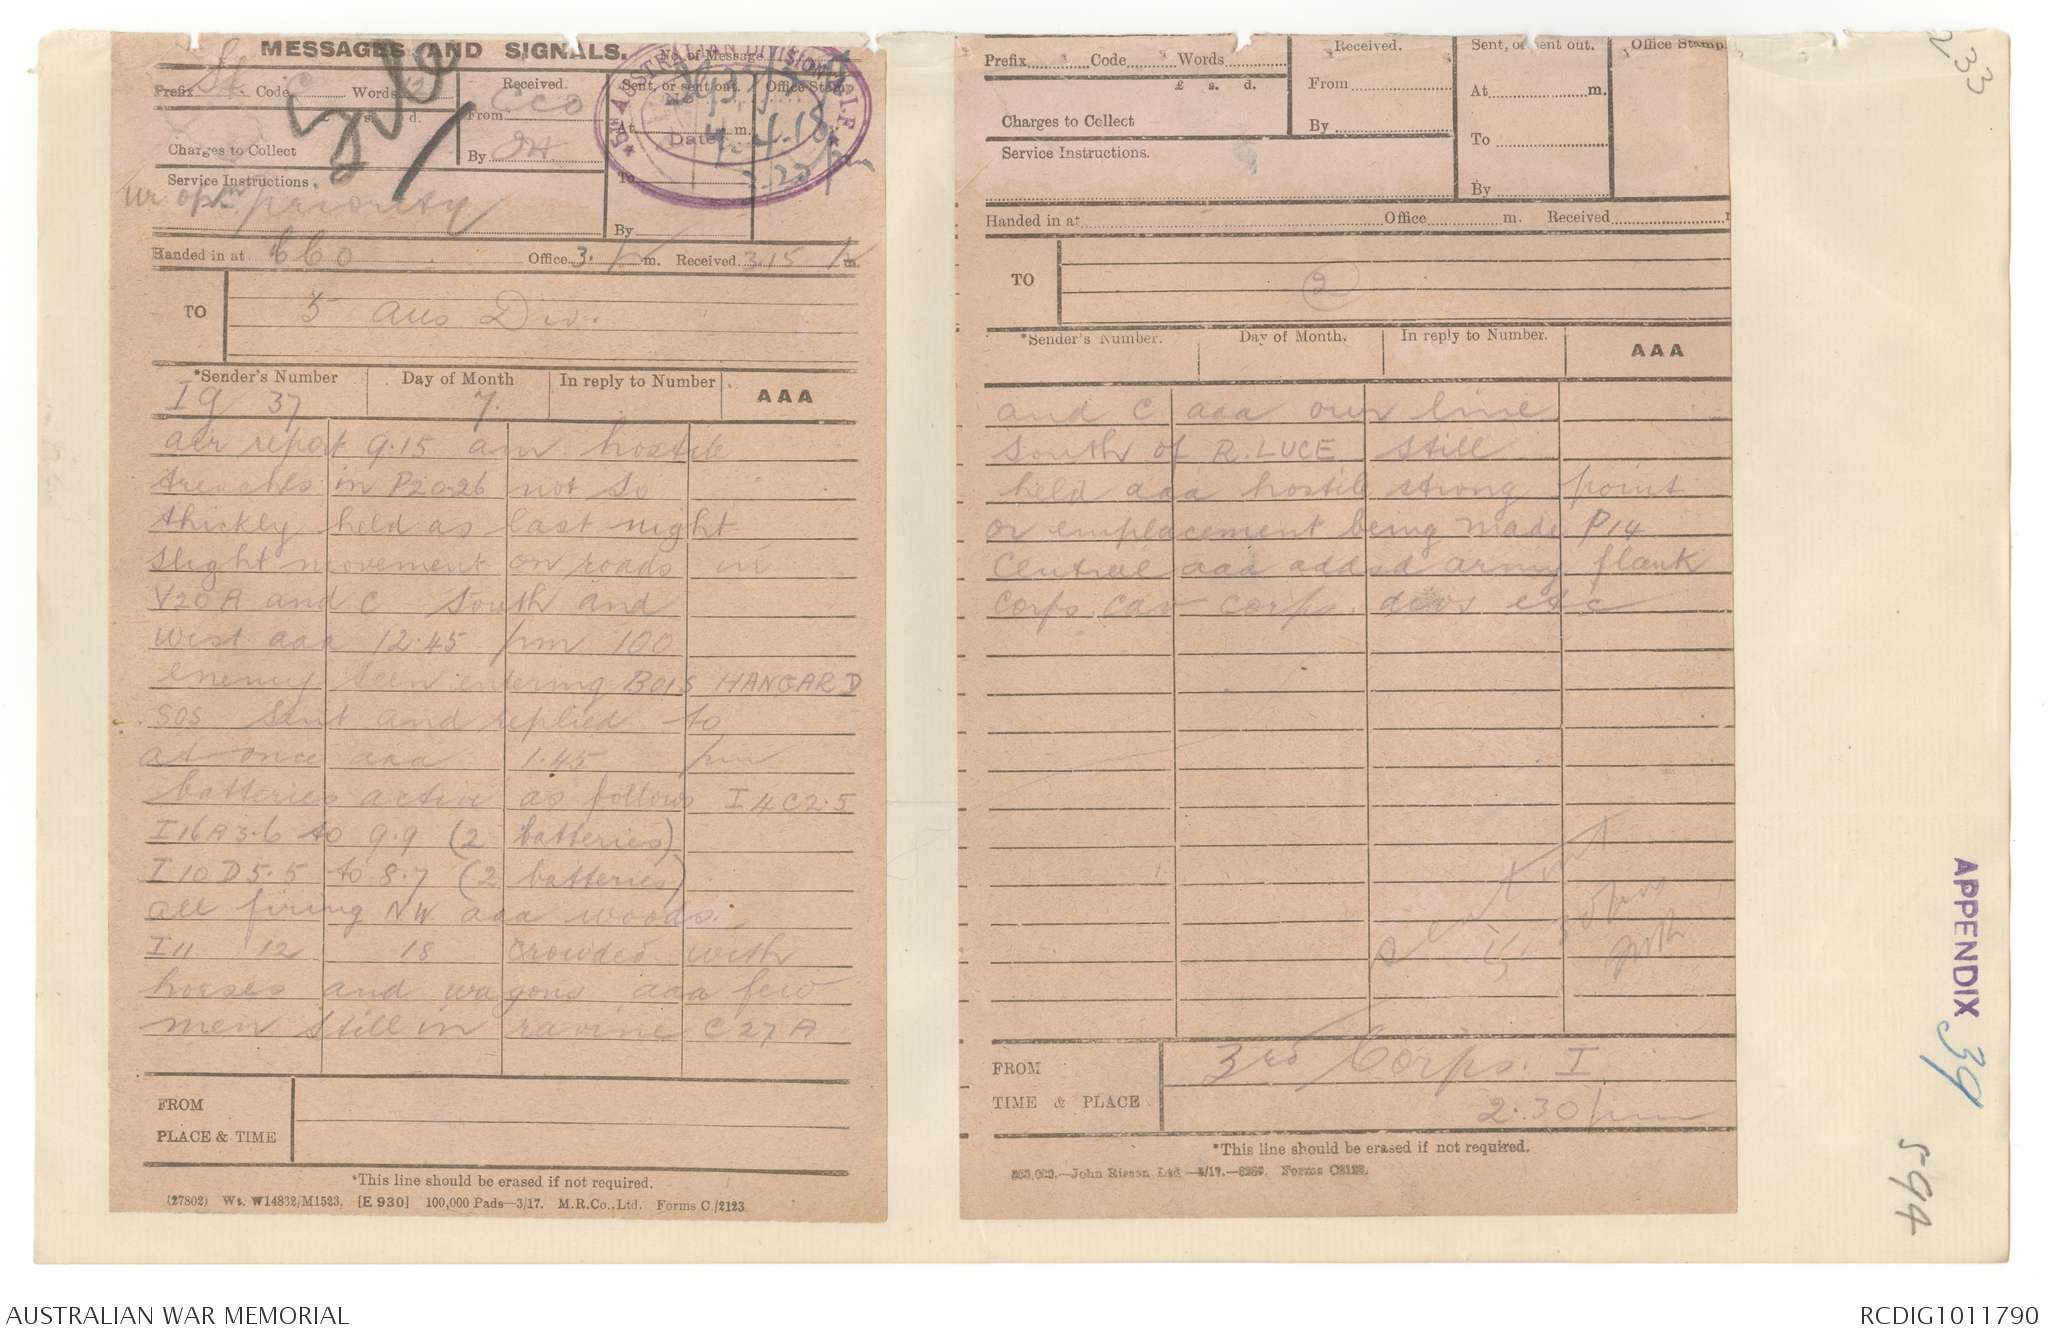 MESSAGES AND SIGNALS.
No. of Message
Prefix Code C Words
£ s. d.
Charges to Collect
Service Instructions.
priority
Received.
From CCO
By
Sent, or sent out.
At m.
To
By
Office Stamp
5TH AUSTRALIAN DIVISION A.I.F.
No.
Date 7.4.18
Handed in at CCO Office 3. pm. Received 3.15 pm.
TO
5 Aus Div.
*Sender's Number
Day of Month
In reply to Number
AAA
Ig 37
7.
air report 9.15 am hostile
trenches in P20.26 not so
thickly held as last night
slight movement on roads in
V20 A and C South and
west aaa 12.45 pm 100
enemy seen entering BOIS HANGARD
SOS sent and replied to
at once aaa 1.45 pm
batteries active as follows I4C2.5
I16A3.6 to 9.9 (2 batteries)
I10D5.5 to 8.7 (2 batteries)
all firing NW aaa woods
I11 12 18 crowded with
horses and wagons aaa few
men still in ravine C27A
FROM
PLACE & TIME
*This line should be erased if not required.
(27802) Wt. W14832/M1523. [E 930] 100,000 Pads—3/17. M.R.Co., Ltd. Forms C/2123
Prefix Code Words
£ s. d.
Charges to Collect
Service Instructions.
Received.
From
By
Sent, or sent out.
At m.
To
By
Office Stamp.
Handed in at Office m. Received
TO
2
*Sender's Number.
Day of Month.
In reply to Number.
AAA
and C aaa our line
South of R. LUCE still
held aaa hostile strong point
or emplacement being made P14
Central aaa added army flank
corps cav corps. divs etc
FROM
TIME & PLACE
3rd Corps. I
2.30 pm
*This line should be erased if not required.
233
APPENDIX 39
594
AUSTRALIAN WAR MEMORIAL
RCDIG1011790